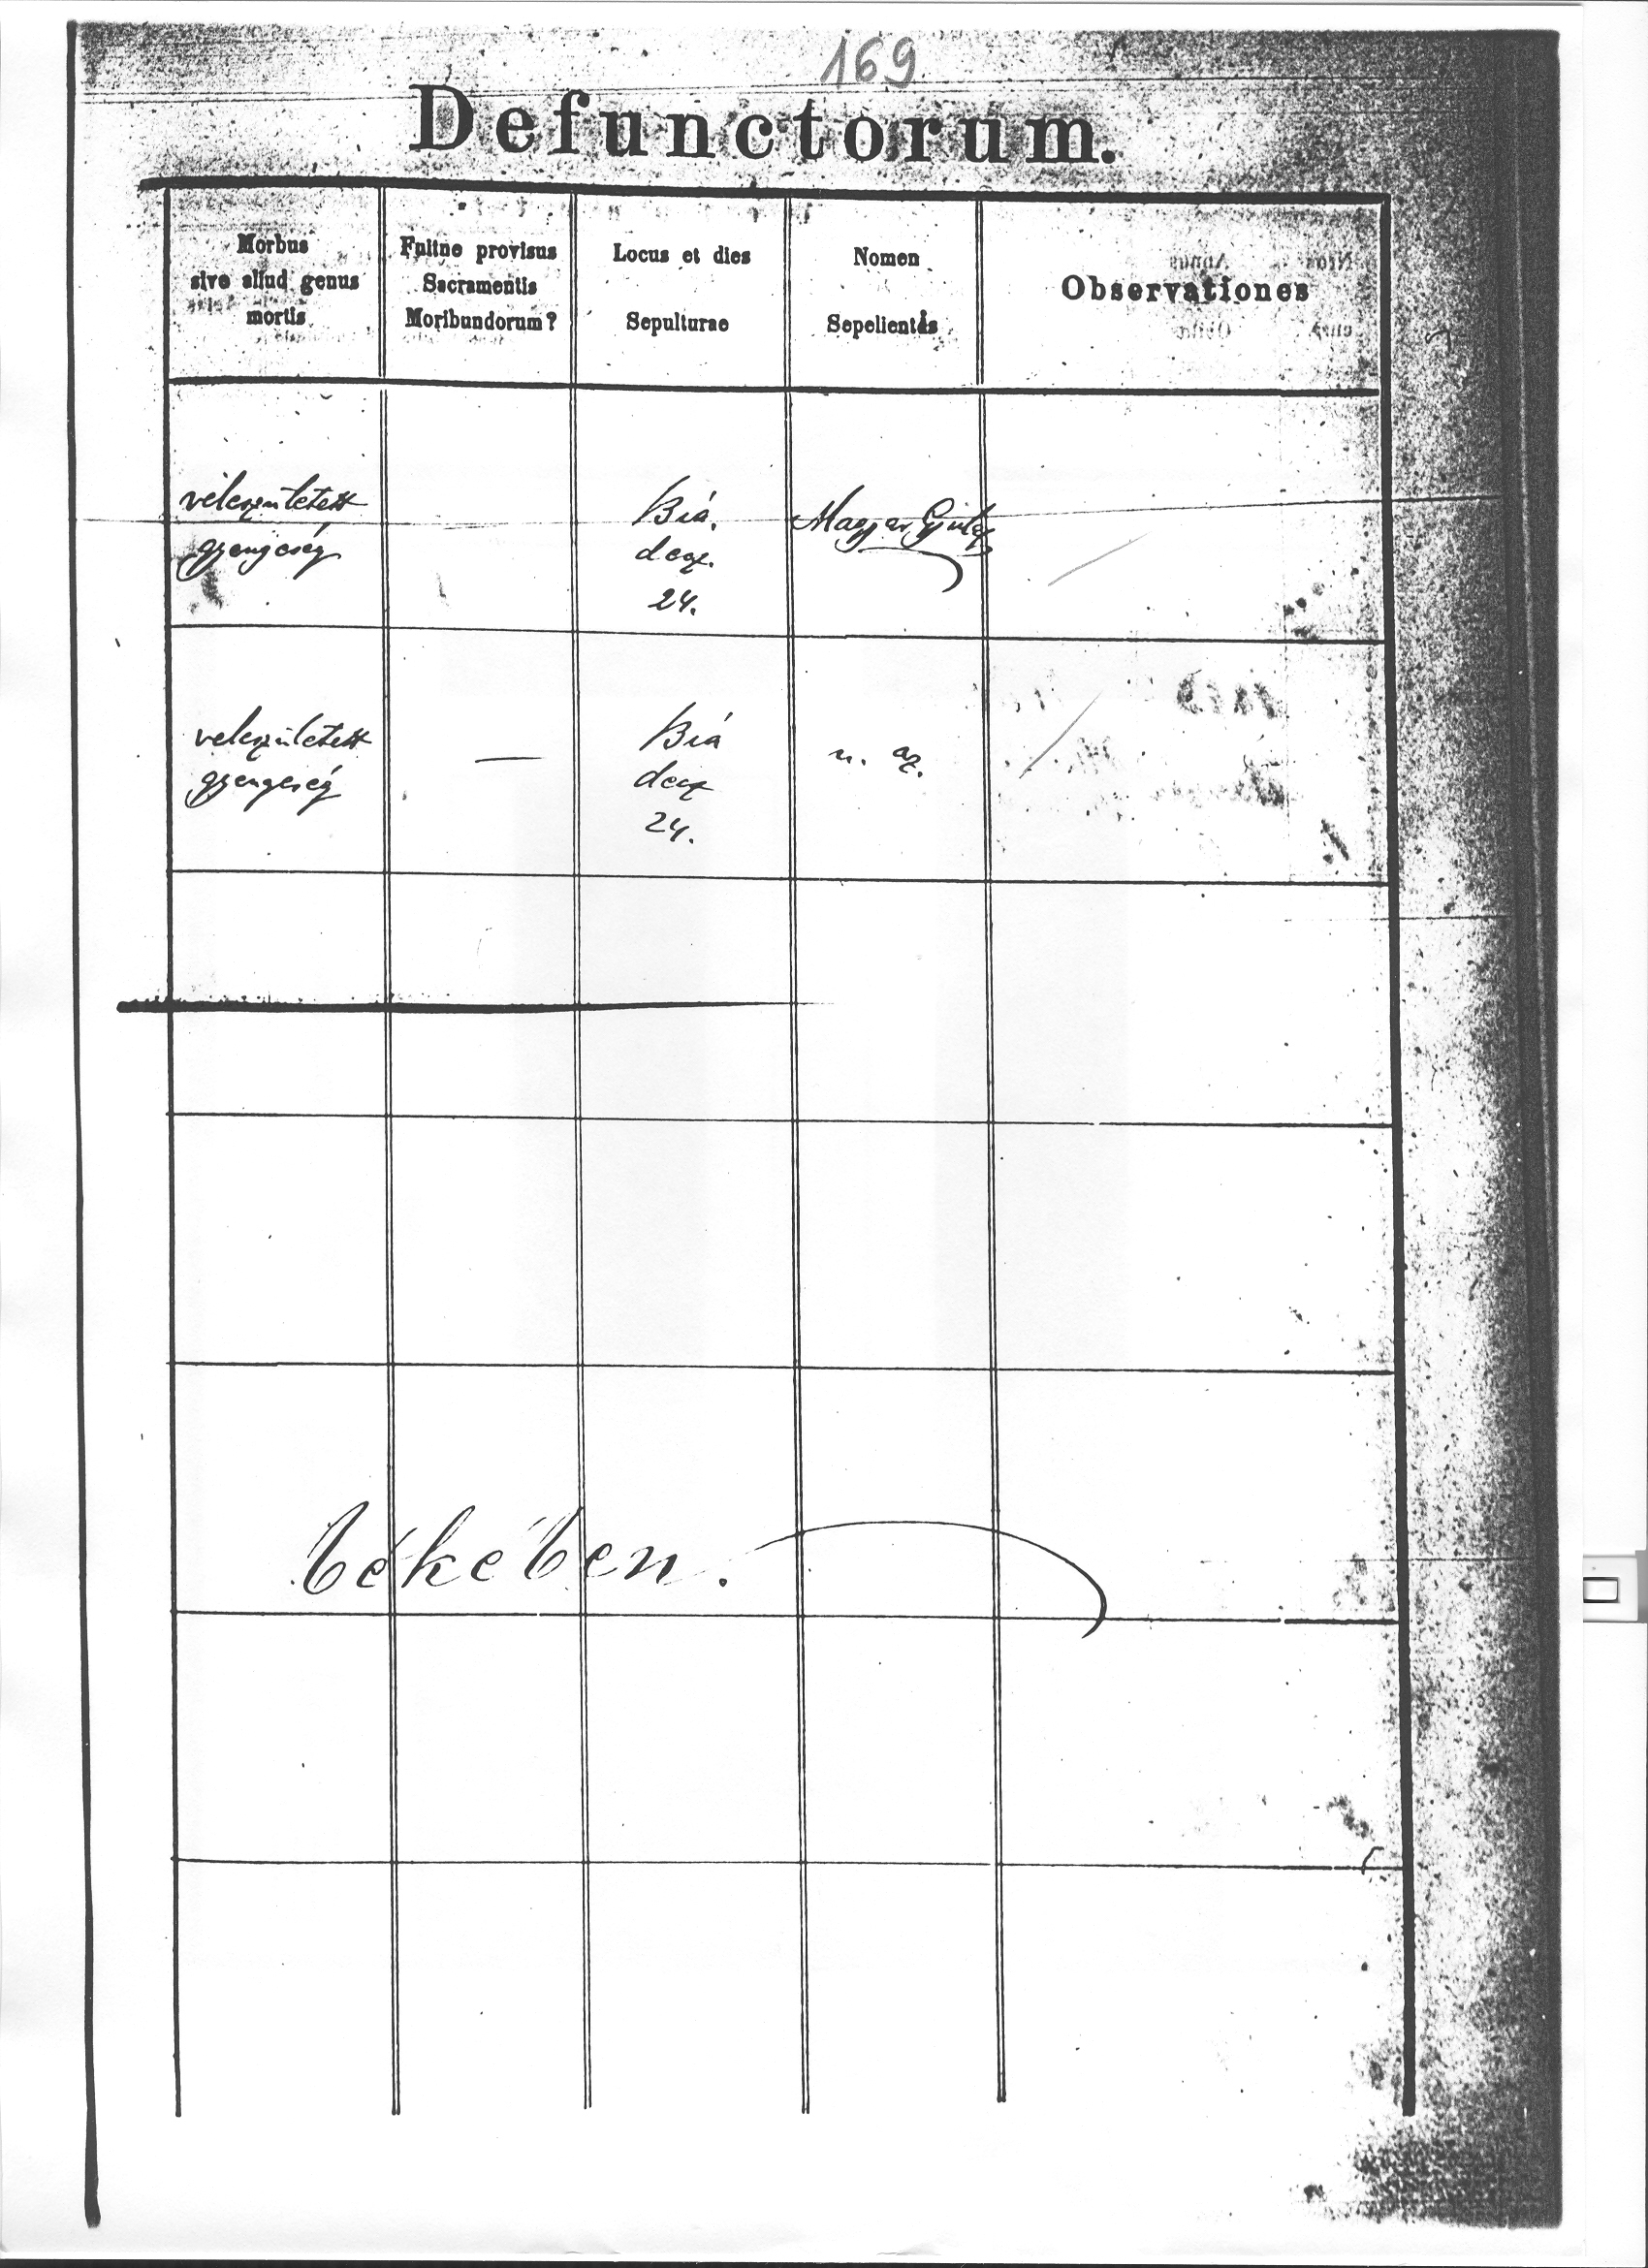 169
Defunctorum.
Morbus
sive aliud genus
mortis
Fuitne provisus
Sacramentis
Moribundorum?
Locus et dies
Sepulturae
Nomen
Sepelientis
Observationes
veleszületett
gyengeség
Biá.
decz.
24.
Magyar Gyula
veleszületett
gyengeség
—
Biá
decz
24.
u. az.
békében.